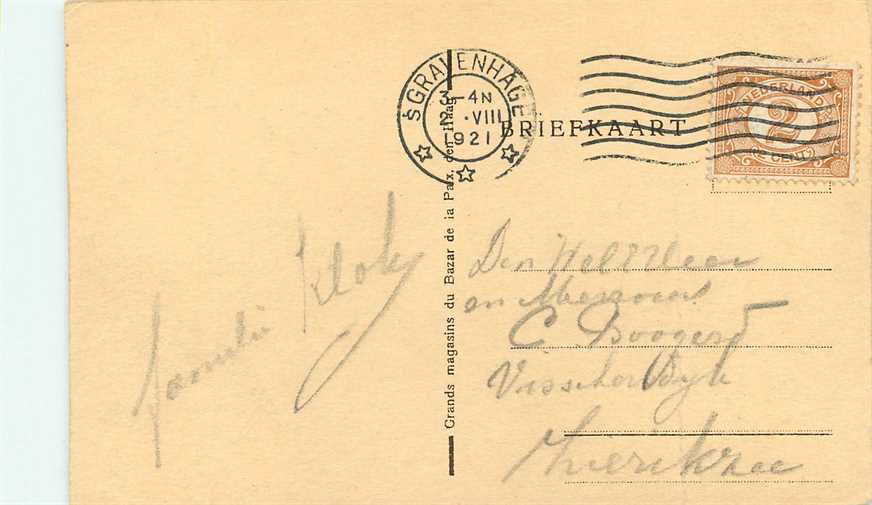 'SGRAVENHAGE
3-4N
2.VIII
1921
NEDERLAND
2
CENT
BRIEFKAART
Grands magasins du Bazar de la Paix, den Haag
familie
Den Wel Heer
en Mevrouw
C Boogerd
Visscherdijk
Zierikzee